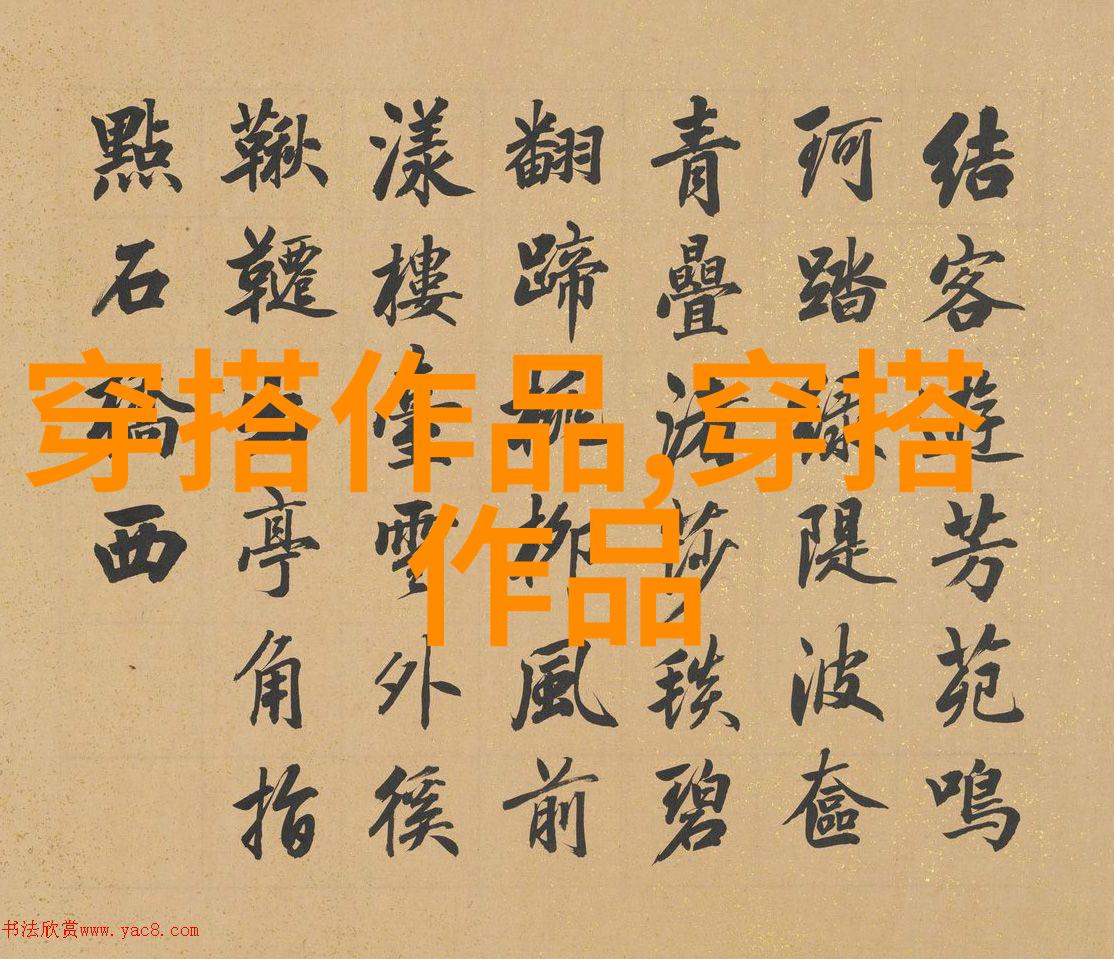 穿搭作品,穿搭
作品
結客遊芳苑鳴
珂踏綠隄波奩
青疊莎毯碧
翻蹄柳風前
漾樓臺雲外徯
鞦韆亭角指
點石橋西
书法欣赏www.yac8.com